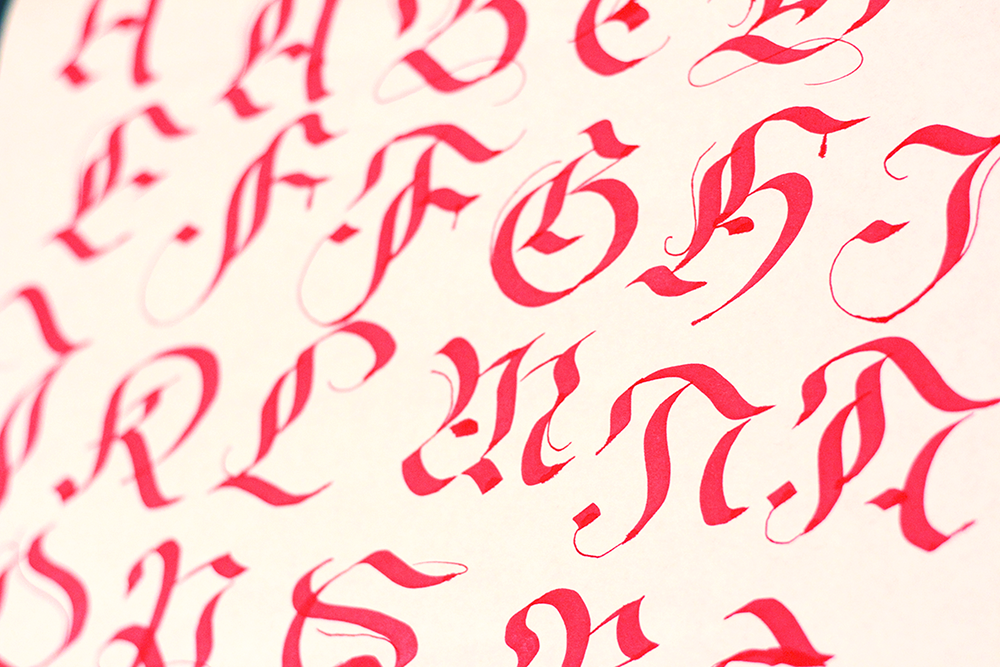 A A B C D
E F F G H I
J K L M N N